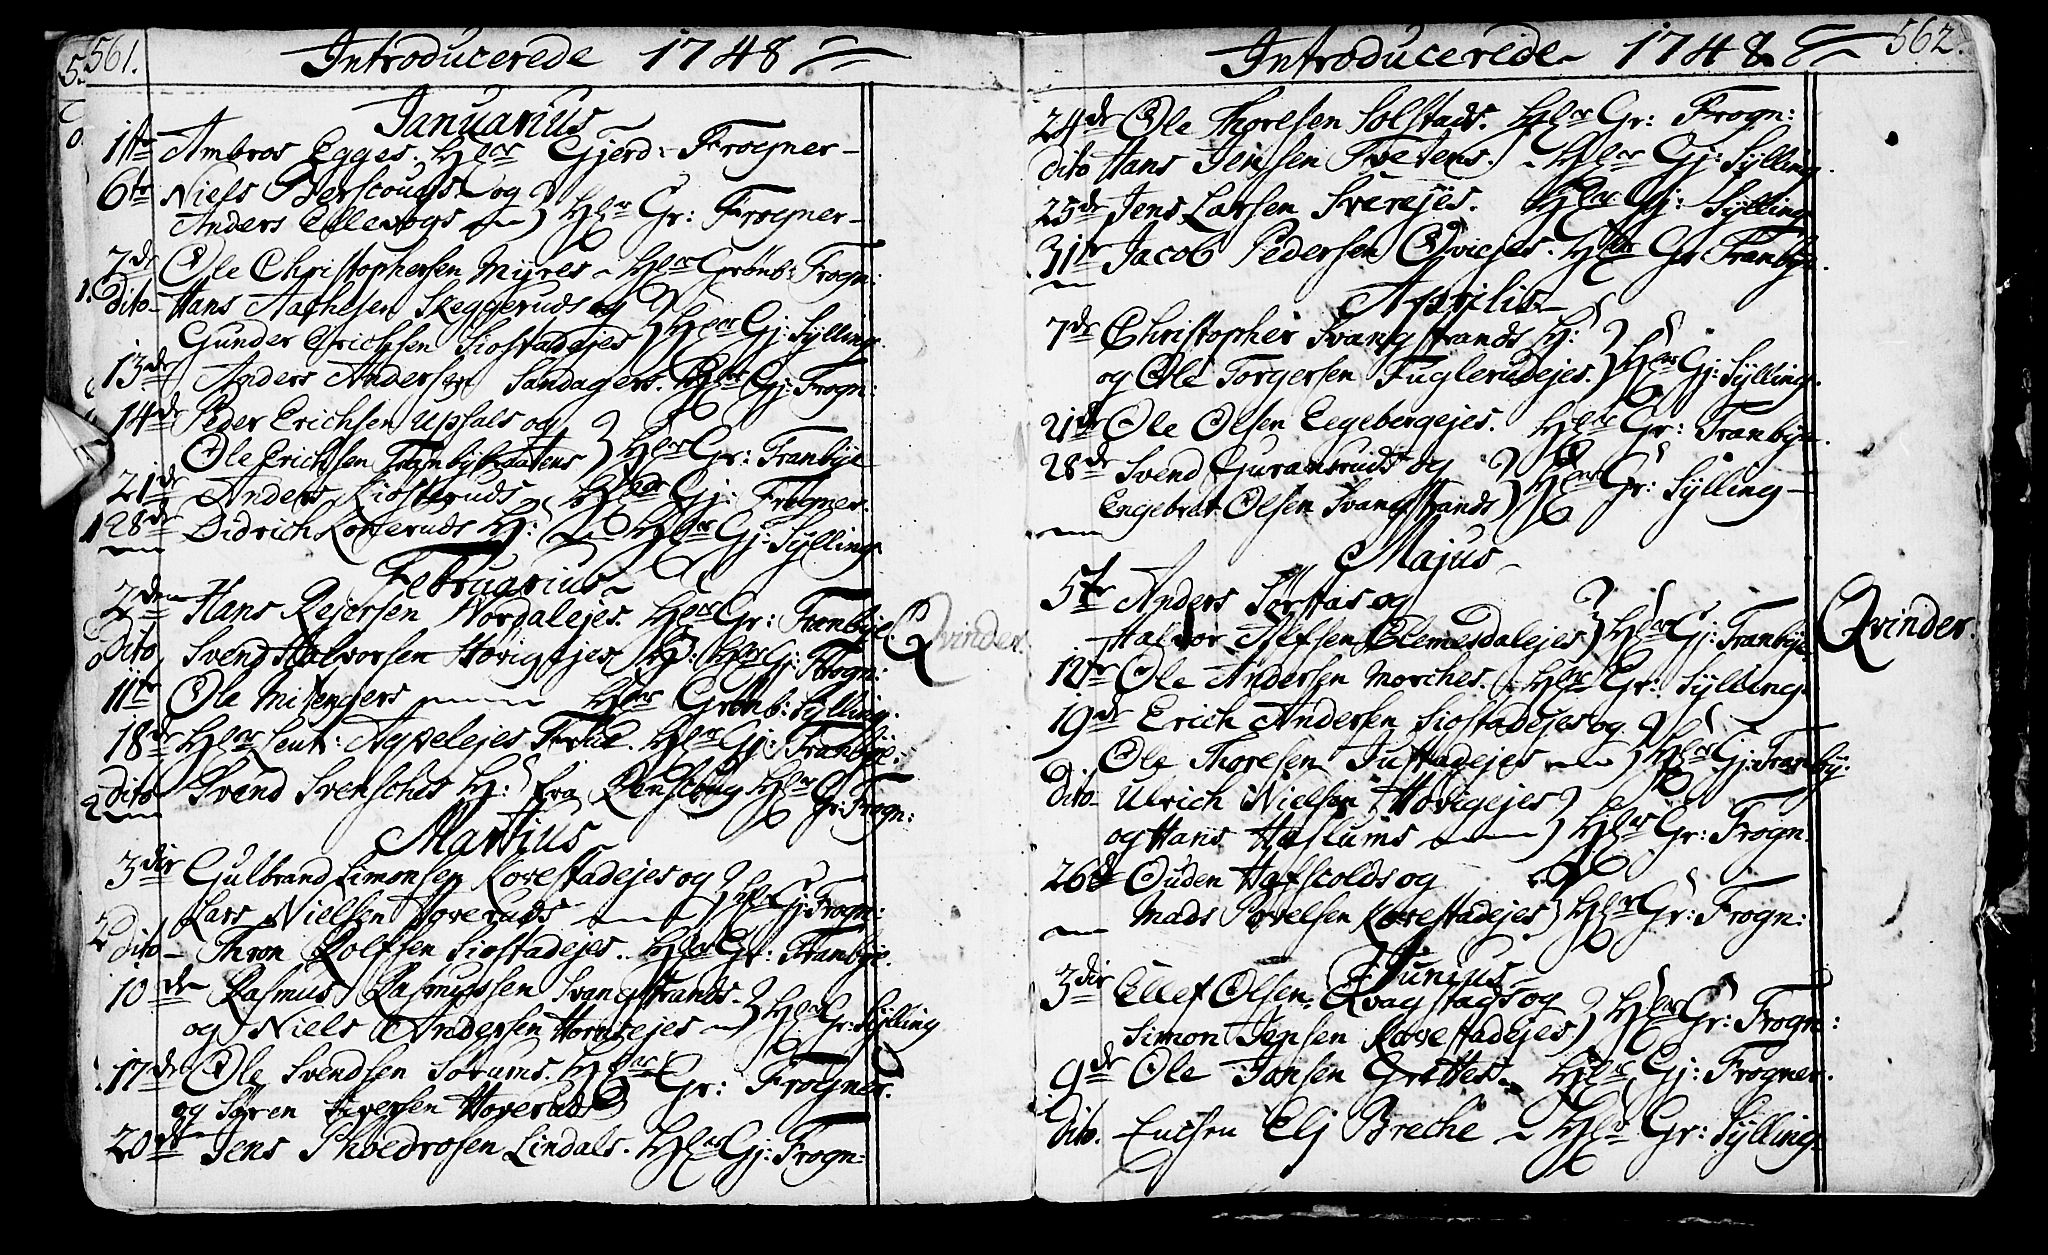 561.
Introducerede 1748
Januarius
1ste Ambros Egges. Hlær Gjerd: Frogner
6te Niels Berscougs og
Anders Ellevogs Hlær Gr: Frogner
7de Ole Christophersen Myres Hlær Grønb: Frogn:
Dito Hans Skeggeruds og
Gunder Erichsen Siostadejes Hlær Gj: Sylling.
13de Anders Andersen Sandagers. Hlær Gj: Frogn:
14de Peder Erichsen Upsals og
Ole Erichsen Tranbybraatens Hlær Gr: Tranbye
21de Anders Kiosteruds Hlær Gj: Frogner.
28de Didrich Losteruds H: Hlær Gj: Sylling
Februarius
2den Hans Rejersen Nordalejes. Hlær Gr: Tranbye.
Dito Svend Halvorsen Hovigejes H: Hlær Gj: Frogn:
11te Ole Misengers Hlær Grønb: Sylling.
18de Hlær Leut: Aspelejes Hlær Gj: Tranbye.
Dito Svend H: fra Hlær Gr: Frogn:
Martius
3die Gulbrand Simonsen Korestadejes og
Lars Nielsen Hoveruds Hlær Gj: Frogn:
Dito Thron Rolfsen Siostadejes. Hlær Gr: Tranbye.
10de Rasmus Rasmussen Svangstrands.
og Niels Andersen Hornsejes Hlær Gr: Sylling
17de Ole Svendsen Sørums. Hlær Gr: Frogner.
og Søren Siversen Hoveruds
20de Jens Phoedrosen Lindals. Hlær Gj: Frogn:
Qvinder.
562.
Introducerede 1748
24de Ole Thoresen Solstads. Hlær Gr: Frogn:
Dito Hans Jensen Tvetens. Hlær Gj: Sylling.
25de Jens Larsen Svereejes. Hlær Gj: Sylling
31te Jacob Pedersen Qvicjes. Hlær Gr Tranbye.
Aprilis
7de Christopher Svangstrands H:
og Ole Torgersen Fuglerudejes. Hlær Gj: Sylling.
21de Ole Olsen Eegebergejes. Hlær Gr: Tranbye.
28de Svend Guransruds og
Engebret Olsen Svangstrands Hlær Gr: Sylling
Majus
5te Anders Sørstas og
Halvor Clemesdalejes Hlær Gj: Tranbye
12te Ole Andersen Morches. Hlær Gr: Sylling
19de Erich Andersen Siostadejes og
Ole Thoresen Justadejes Hlær Gj: Tranby:
Dito Ulrich Nielsen Hovigejes
og Hans Haslums Hlær Gr: Frogn.
26de Ouden Hafscolds og
Mads Povelsen Korestadejes Hlær Gr: Frogn:
Junius
3die Ellef Olsen Qvagstags og
Simon Jensen Korestadejes Hlær Gr: Frogn:
9de Ole Jansen Grettes. Hlær Gj: Frogner.
Dito. Enchen Elj Breche Hlær Gr: Sylling.
Qvinder.